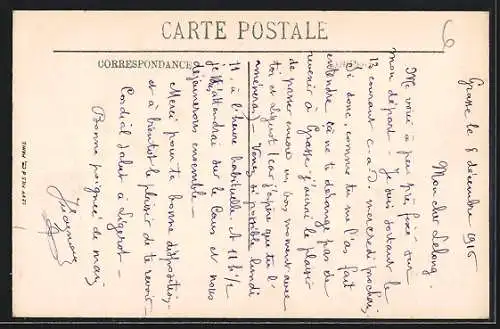 CARTE POSTALE
CORRESPONDANCE
6
Grasse le 8 décembre 1916
Mon cher Lelong.
Me voici à peu près fixé sur
mon départ. Je suis partant le
13 courant c.a.d. mercredi prochain
Si donc, comme tu me l'as fait
entendre ça ne te dérange pas de
revenir à Grasse j'aurai le plaisir
de passer encore un bon moment avec
toi et Ligerot (car j'espère que tu l'
amèneras) - Venez si possible lundi
11, à l'heure habituelle. A 11h 1/2
je t'attendrai sur le Cours et nous
déjeunerons ensemble -
Merci pour ta bonne disposition,
et à bientôt le plaisir de te revoir -
Cordial salut à Ligerot -
Bonne poignée de main